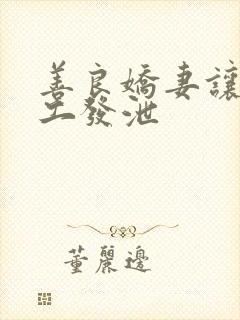 善良嬌妻讓
工發泄
董麗邊